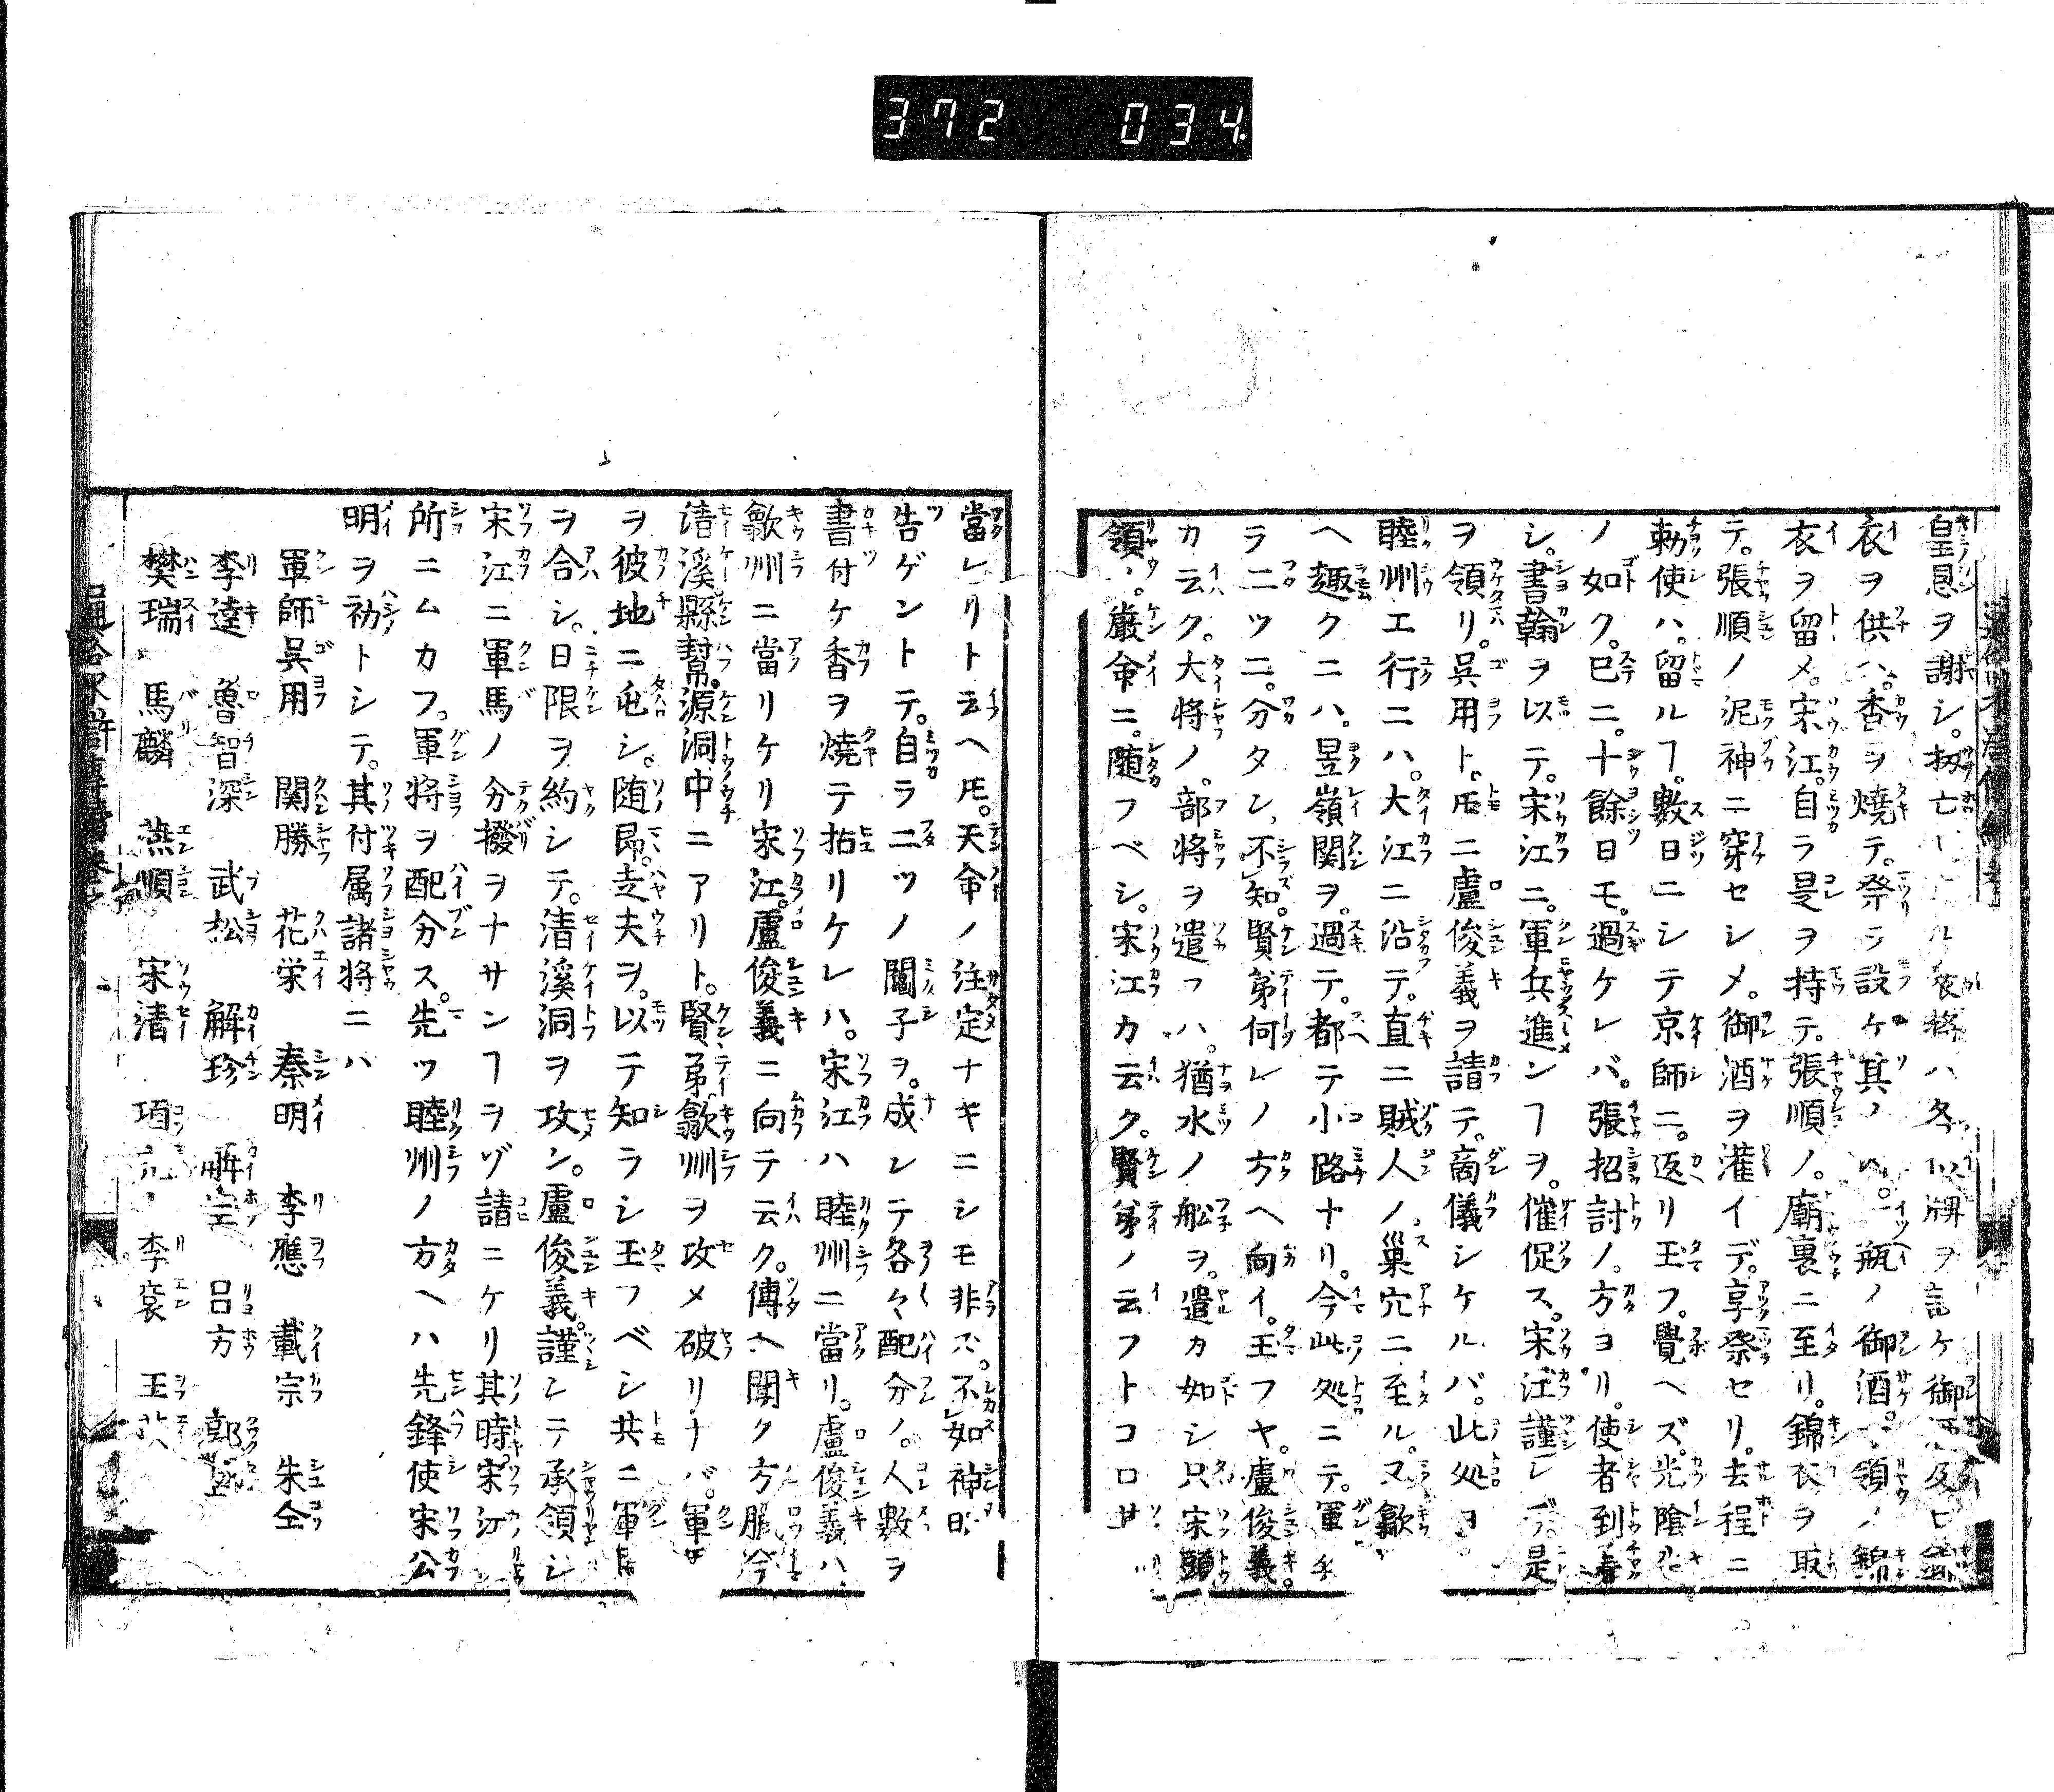 372 034
皇恩ヲ謝シ。扨亡ル衣格ハ各似牌ヲ記ケ御酒及ヒ錦
衣ヲ供ヘ。香ヲ燒テ。祭ヲ設ケ其ノ一瓶ノ御酒。一領ノ錦
衣ヲ留メ。宋江。自ラ是ヲ持テ。張順ノ。廟裏ニ至リ。錦衣ヲ取
テ。張順ノ泥神ニ穿セシメ。御酒ヲ灌イデ。享祭セリ。去程ニ
勅使ハ。留ルヿ。數日ニシテ京師ニ。返リ玉フ。覺ヘズ。光陰
ノ如ク。巳ニ。十餘日モ。過ケレバ。張招討ノ。方ヨリ。使者到着
シ。書翰ヲ以テ。宋江ニ。軍兵進ンヿヲ。催促ス。宋江謹シデ。是
ヲ領リ。呉用ト。𪜈ニ盧俊義ヲ請テ。商儀シケルバ。此処ヨ
睦州エ行ニハ。大江ニ沿テ。直ニ賊人ノ巢穴ニ至ル。又歙
ヘ趣クニハ。昱嶺関ヲ。過テ。都テ小路ナリ。今此処ニテ。軍
ラ二ツニ。分タン、不知。賢弟何レノ方ヘ向イ。玉フヤ。盧俊義
カ云ク。大将ノ。部将ヲ遣フハ。猶水ノ舩ヲ。遣カ如シ只宋頭
領、。嚴命ニ。随フベシ。宋江カ云ク。賢弟ノ云フトコロ
當レリト云ヘ𪜈。天命ノ注定ナキニシモ非ズ。不如神明
告ゲントテ。自ラ二ツノ鬮子ヲ。成レテ各々配分ノ。人數ヲ
書付ケ香ヲ燒テ拈リケレハ。宋江ハ睦州ニ當リ。盧俊義ハ
歙州ニ當リケリ宋江。盧俊義ニ向テ云ク。傳ヘ聞ク方臘今
清溪縣幇源洞中ニアリト。賢弟。歙州ヲ攻メ破リナバ。軍
ヲ彼地ニ屯シ。随即。走夫ヲ。以テ知ラシ玉フベシ共ニ軍
ヲ合シ。日限ヲ約シテ。清溪洞ヲ攻ン。盧俊義。謹シテ承領シ
宋江ニ軍馬ノ分撥ヲナサンヿヲゾ請ニケリ其時。宋江
所ニムカフ。軍将ヲ配分ス。先ツ睦州ノ方ヘハ先鋒使宋公
明ヲ初トシテ。其付属諸将ニハ
軍師呉用 関勝 花栄 秦明 李應 戴宗 朱仝
李逵 魯智深 武松 解珍 解宝 呂方 郭盛
樊瑞 馬麟 燕順 宋清 項充 李袞 王英